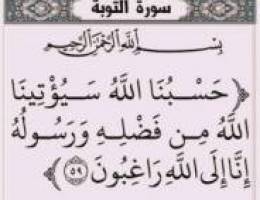 سورة التوبة
بِسْمِ اللَّهِ الرَّحْمَٰنِ الرَّحِيمِ
﴿حَسْبُنَا اللَّهُ سَيُؤْتِينَا
اللَّهُ مِن فَضْلِهِ وَرَسُولُهُ
إِنَّا إِلَى اللَّهِ رَاغِبُونَ ٥٩﴾